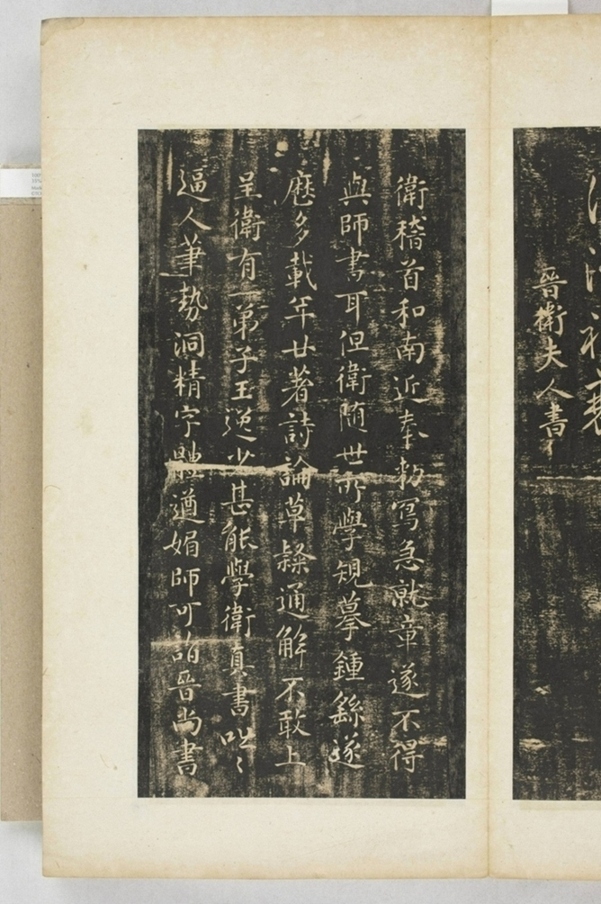 晉衛夫人書
衛稽首和南近奉勑寫急就章遂不得
與師書耳但衛隨世所學規摹鍾繇遂
歷多載年廿著詩論草隸通解不敢上
呈衛有一弟子王逸少甚能學衛真書咄〻
逼人筆勢洞精字體遒媚師可詣晉尚書